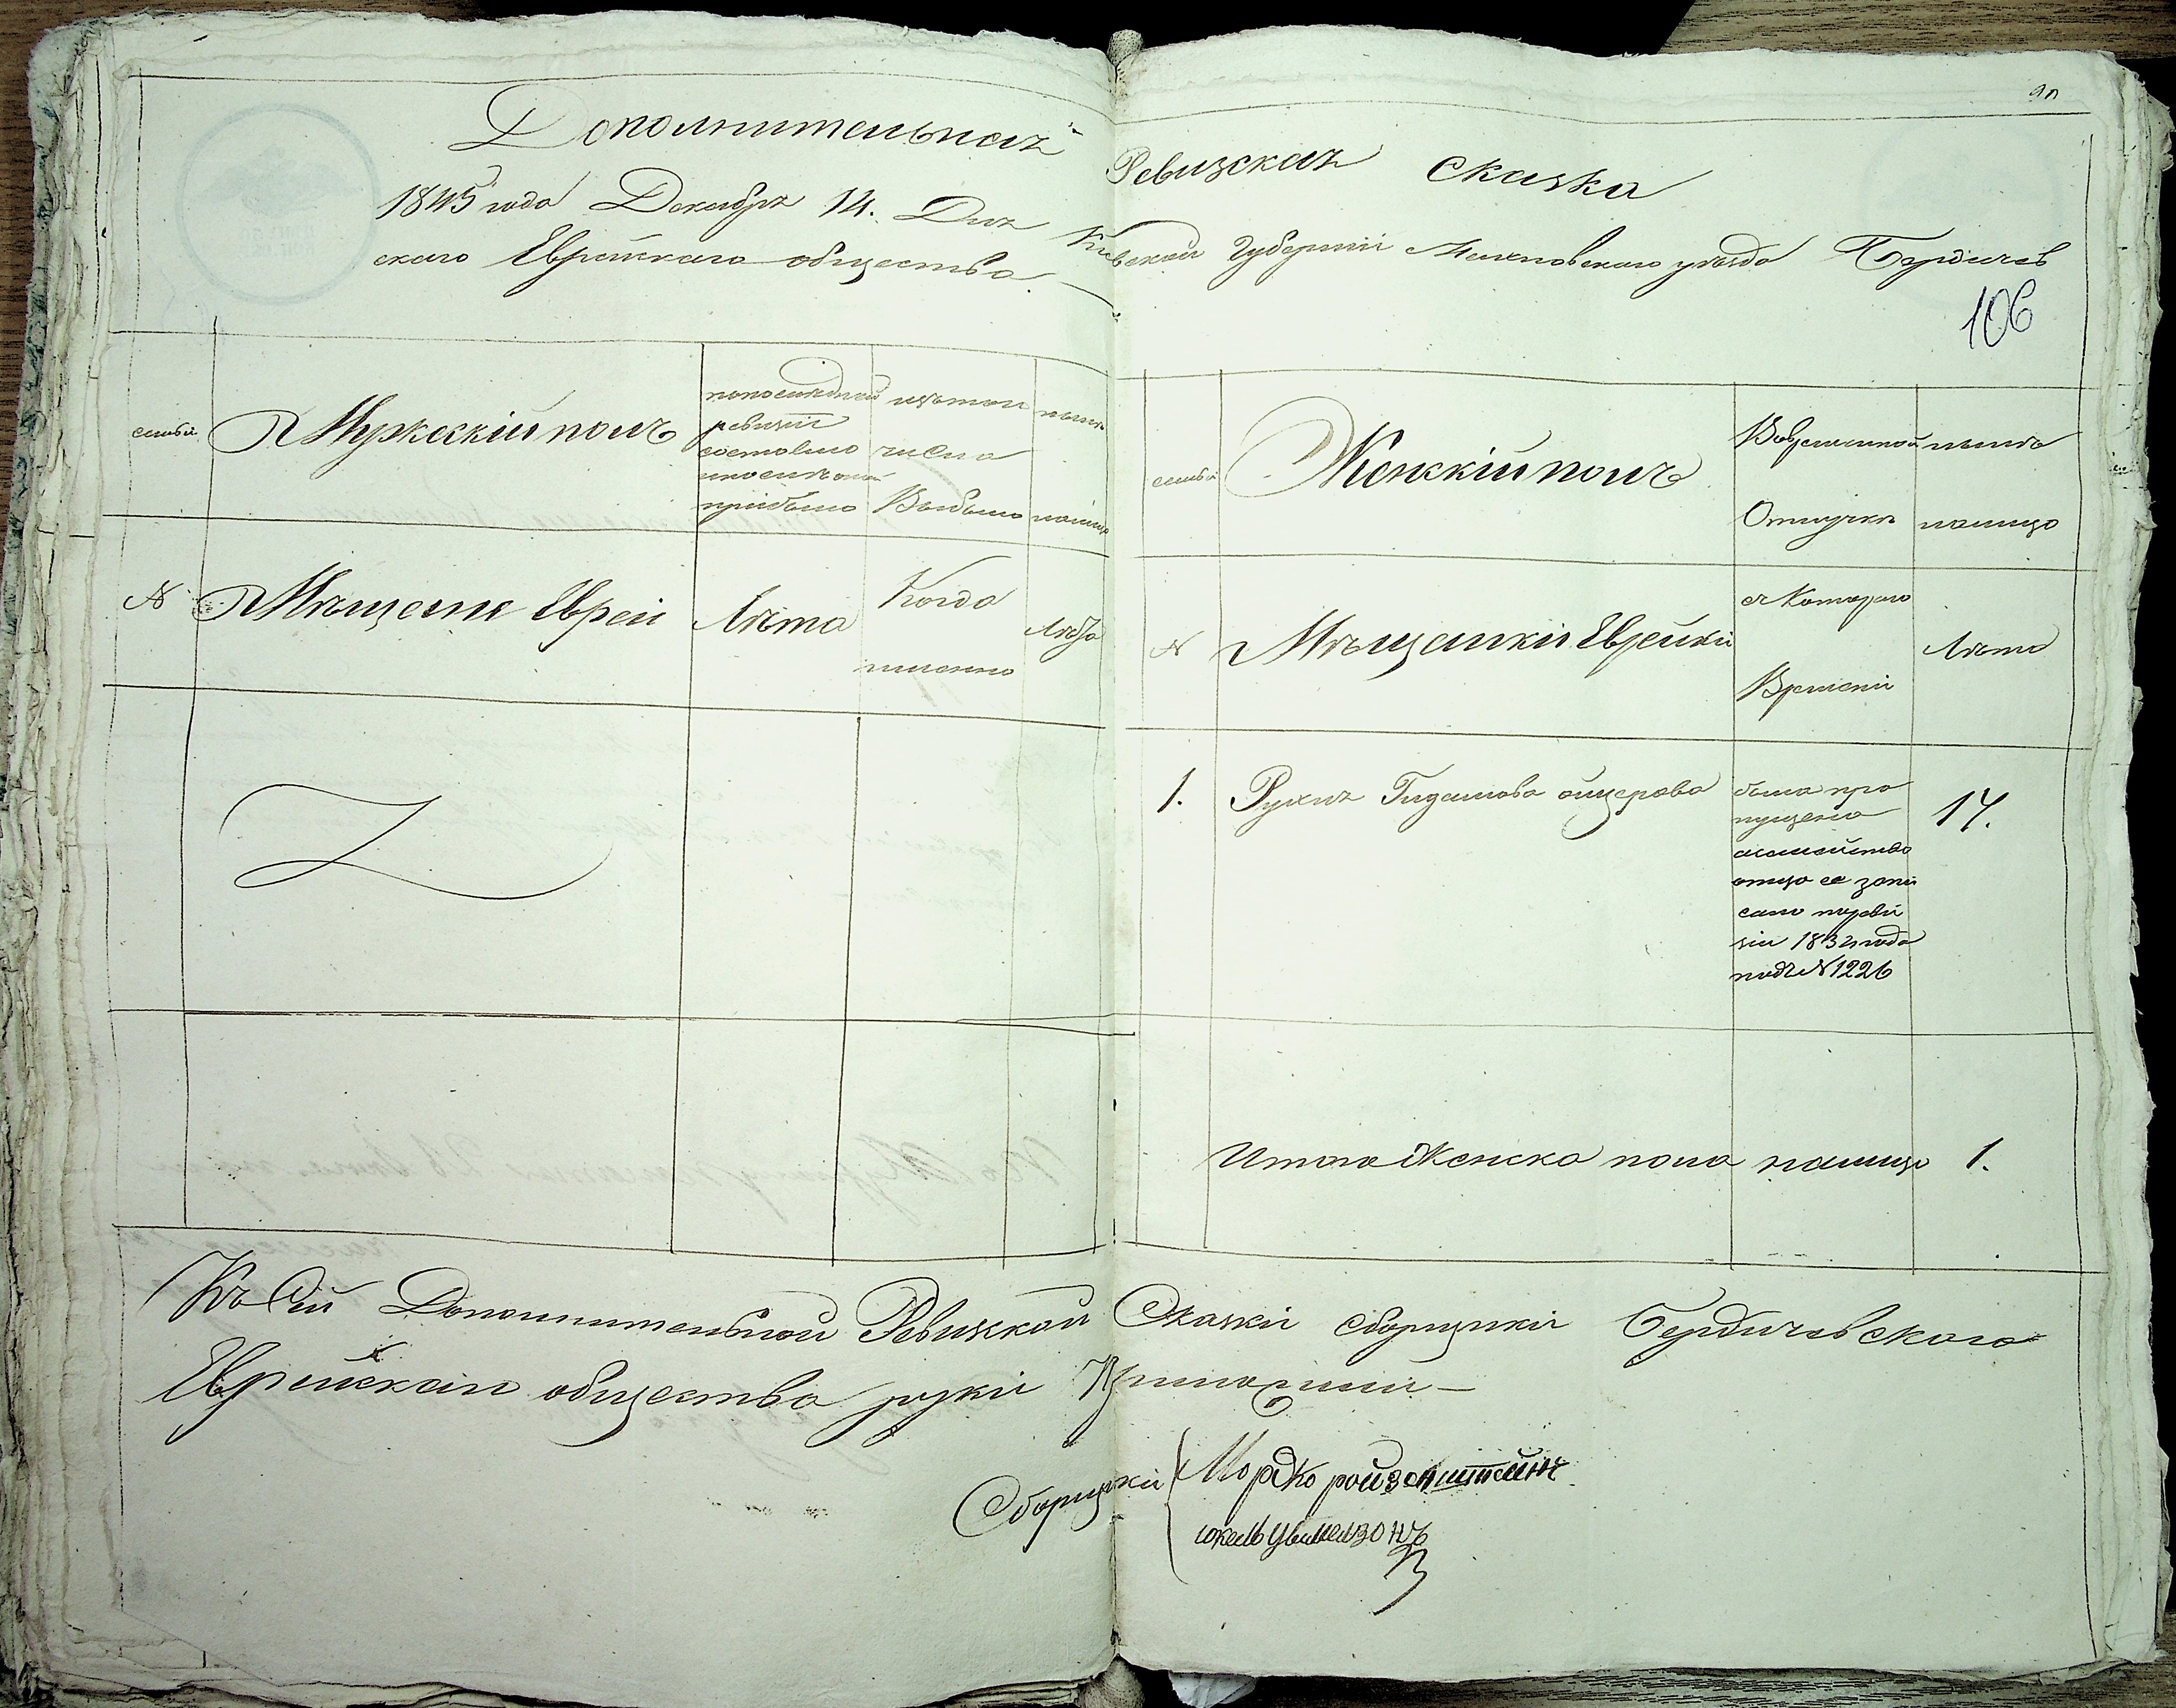 Дополнительная Ревизская Сказка
1845 года Декабря 14. Дня Киевской Губернии Махновского уезда Бердичев
ского Еврейскаго общества
90
106
семьи
Мужескій полъ
по последней
ревизіи
состояло
и после оной
прибыло
изътого
числа
Выбыло
ныне
налицо
№
Мещане Евреи
Лета
Когда
именно
Лета
семьи
Женскій полъ
Вовременной
Отлучке
ныне
налицо
№
Мещанки Еврейки
скотораго
Времени
Лета
1.
Рухля Гидалиова ошерова
была про
пущена
а семейство
отца ее запи
сано пореви
зіи 1834 года
подъ № 1226
14.
Итого Женска пола налицо 1.
Къ Сей Дополнительной Ревизской Сказки сборщики Бердичевского
Еврейскаго общества руки Приложили
Сборщики
Мордко ройзенштейнъ